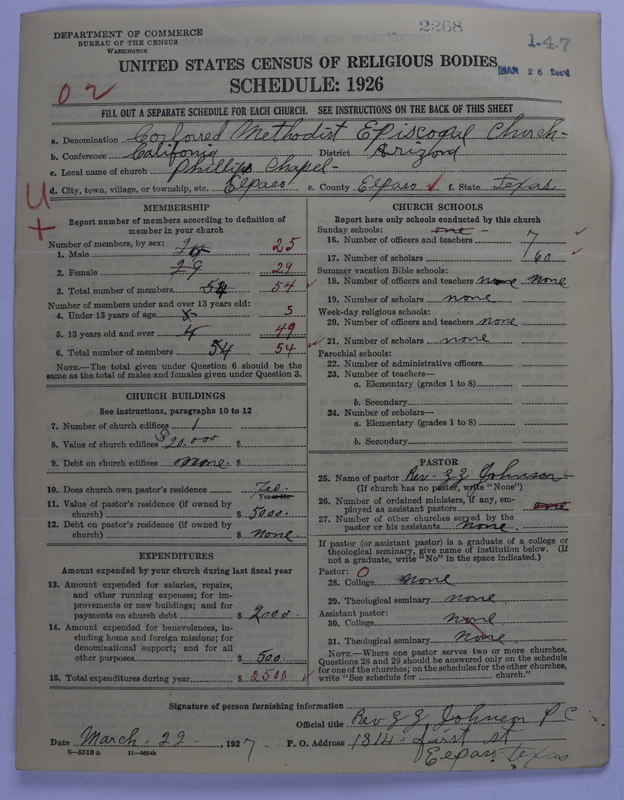 DEPARTMENT OF COMMERCE
BUREAU OF THE CENSUS
WASHINGTON
2268
1-4-7
UNITED STATES CENSUS OF RELIGIOUS BODIES
MAR 26 Rec'd
SCHEDULE: 1926
02
FILL OUT A SEPARATE SCHEDULE FOR EACH CHURCH. SEE INSTRUCTIONS ON THE BACK OF THIS SHEET
a. Denomination Corloured Methodist Episcopal Church-
b. Conference Califonia District Arizona
c. Local name of church Phillips Chapel-
d. City, town, village, or township, etc. Elpaso e. County Elpaso ✓ f. State Texas
U
+
MEMBERSHIP
Report number of members according to definition of
member in your church
Number of members, by sex:
1. Male 25
2. Female 29 29
3. Total number of members 54 54 ✓
Number of members under and over 13 years old:
4. Under 13 years of age 5 5
5. 13 years old and over 4 49
6. Total number of members 54 54 ✓
NOTE.—The total given under Question 6 should be the
same as the total of males and females given under Question 3.
CHURCH BUILDINGS
See instructions, paragraphs 10 to 12
7. Number of church edifices 1
8. Value of church edifices $20.000 $
9. Debt on church edifices none $
10. Does church own pastor's residence
Yes or No
11. Value of pastor's residence (if owned by
church) $ 5000.
12. Debt on pastor's residence (if owned by
church) $ none
EXPENDITURES
Amount expended by your church during last fiscal year
13. Amount expended for salaries, repairs,
and other running expenses; for im-
provements or new buildings; and for
payments on church debt $ 2000.
14. Amount expended for benevolences, in-
cluding home and foreign missions; for
denominational support; and for all
other purposes $ 500.
15. Total expenditures during year $ 2500 ✓
CHURCH SCHOOLS
Report here only schools conducted by this church
Sunday schools: one -
16. Number of officers and teachers 7 ✓
17. Number of scholars 60 ✓
Summer vacation Bible schools:
18. Number of officers and teachers none none
19. Number of scholars none
Week-day religious schools:
20. Number of officers and teachers none
21. Number of scholars none
Parochial schools:
22. Number of administrative officers
23. Number of teachers—
a. Elementary (grades 1 to 8)
b. Secondary
24. Number of scholars—
a. Elementary (grades 1 to 8)
b. Secondary
PASTOR
25. Name of pastor Rev. Johnson
(If church has no pastor, write "None")
26. Number of ordained ministers, if any, em-
ployed as assistant pastors
27. Number of other churches served by the
pastor or his assistants none
If pastor (or assistant pastor) is a graduate of a college or
theological seminary, give name of institution below. (If
not a graduate, write "No" in the space indicated.)
Pastor: O
28. College none
29. Theological seminary none
Assistant pastor:
30. College none
31. Theological seminary none
NOTE.—Where one pastor serves two or more churches,
Questions 28 and 29 should be answered only on the schedule
for one of the churches; on the schedules for the other churches,
write "See schedule for church."
Signature of person furnishing information
Official title Rev Johnson P C
Date March. 22, 1927. P. O. Address 1314. first st
6—5518a 11—9054b
Elpaso Texas